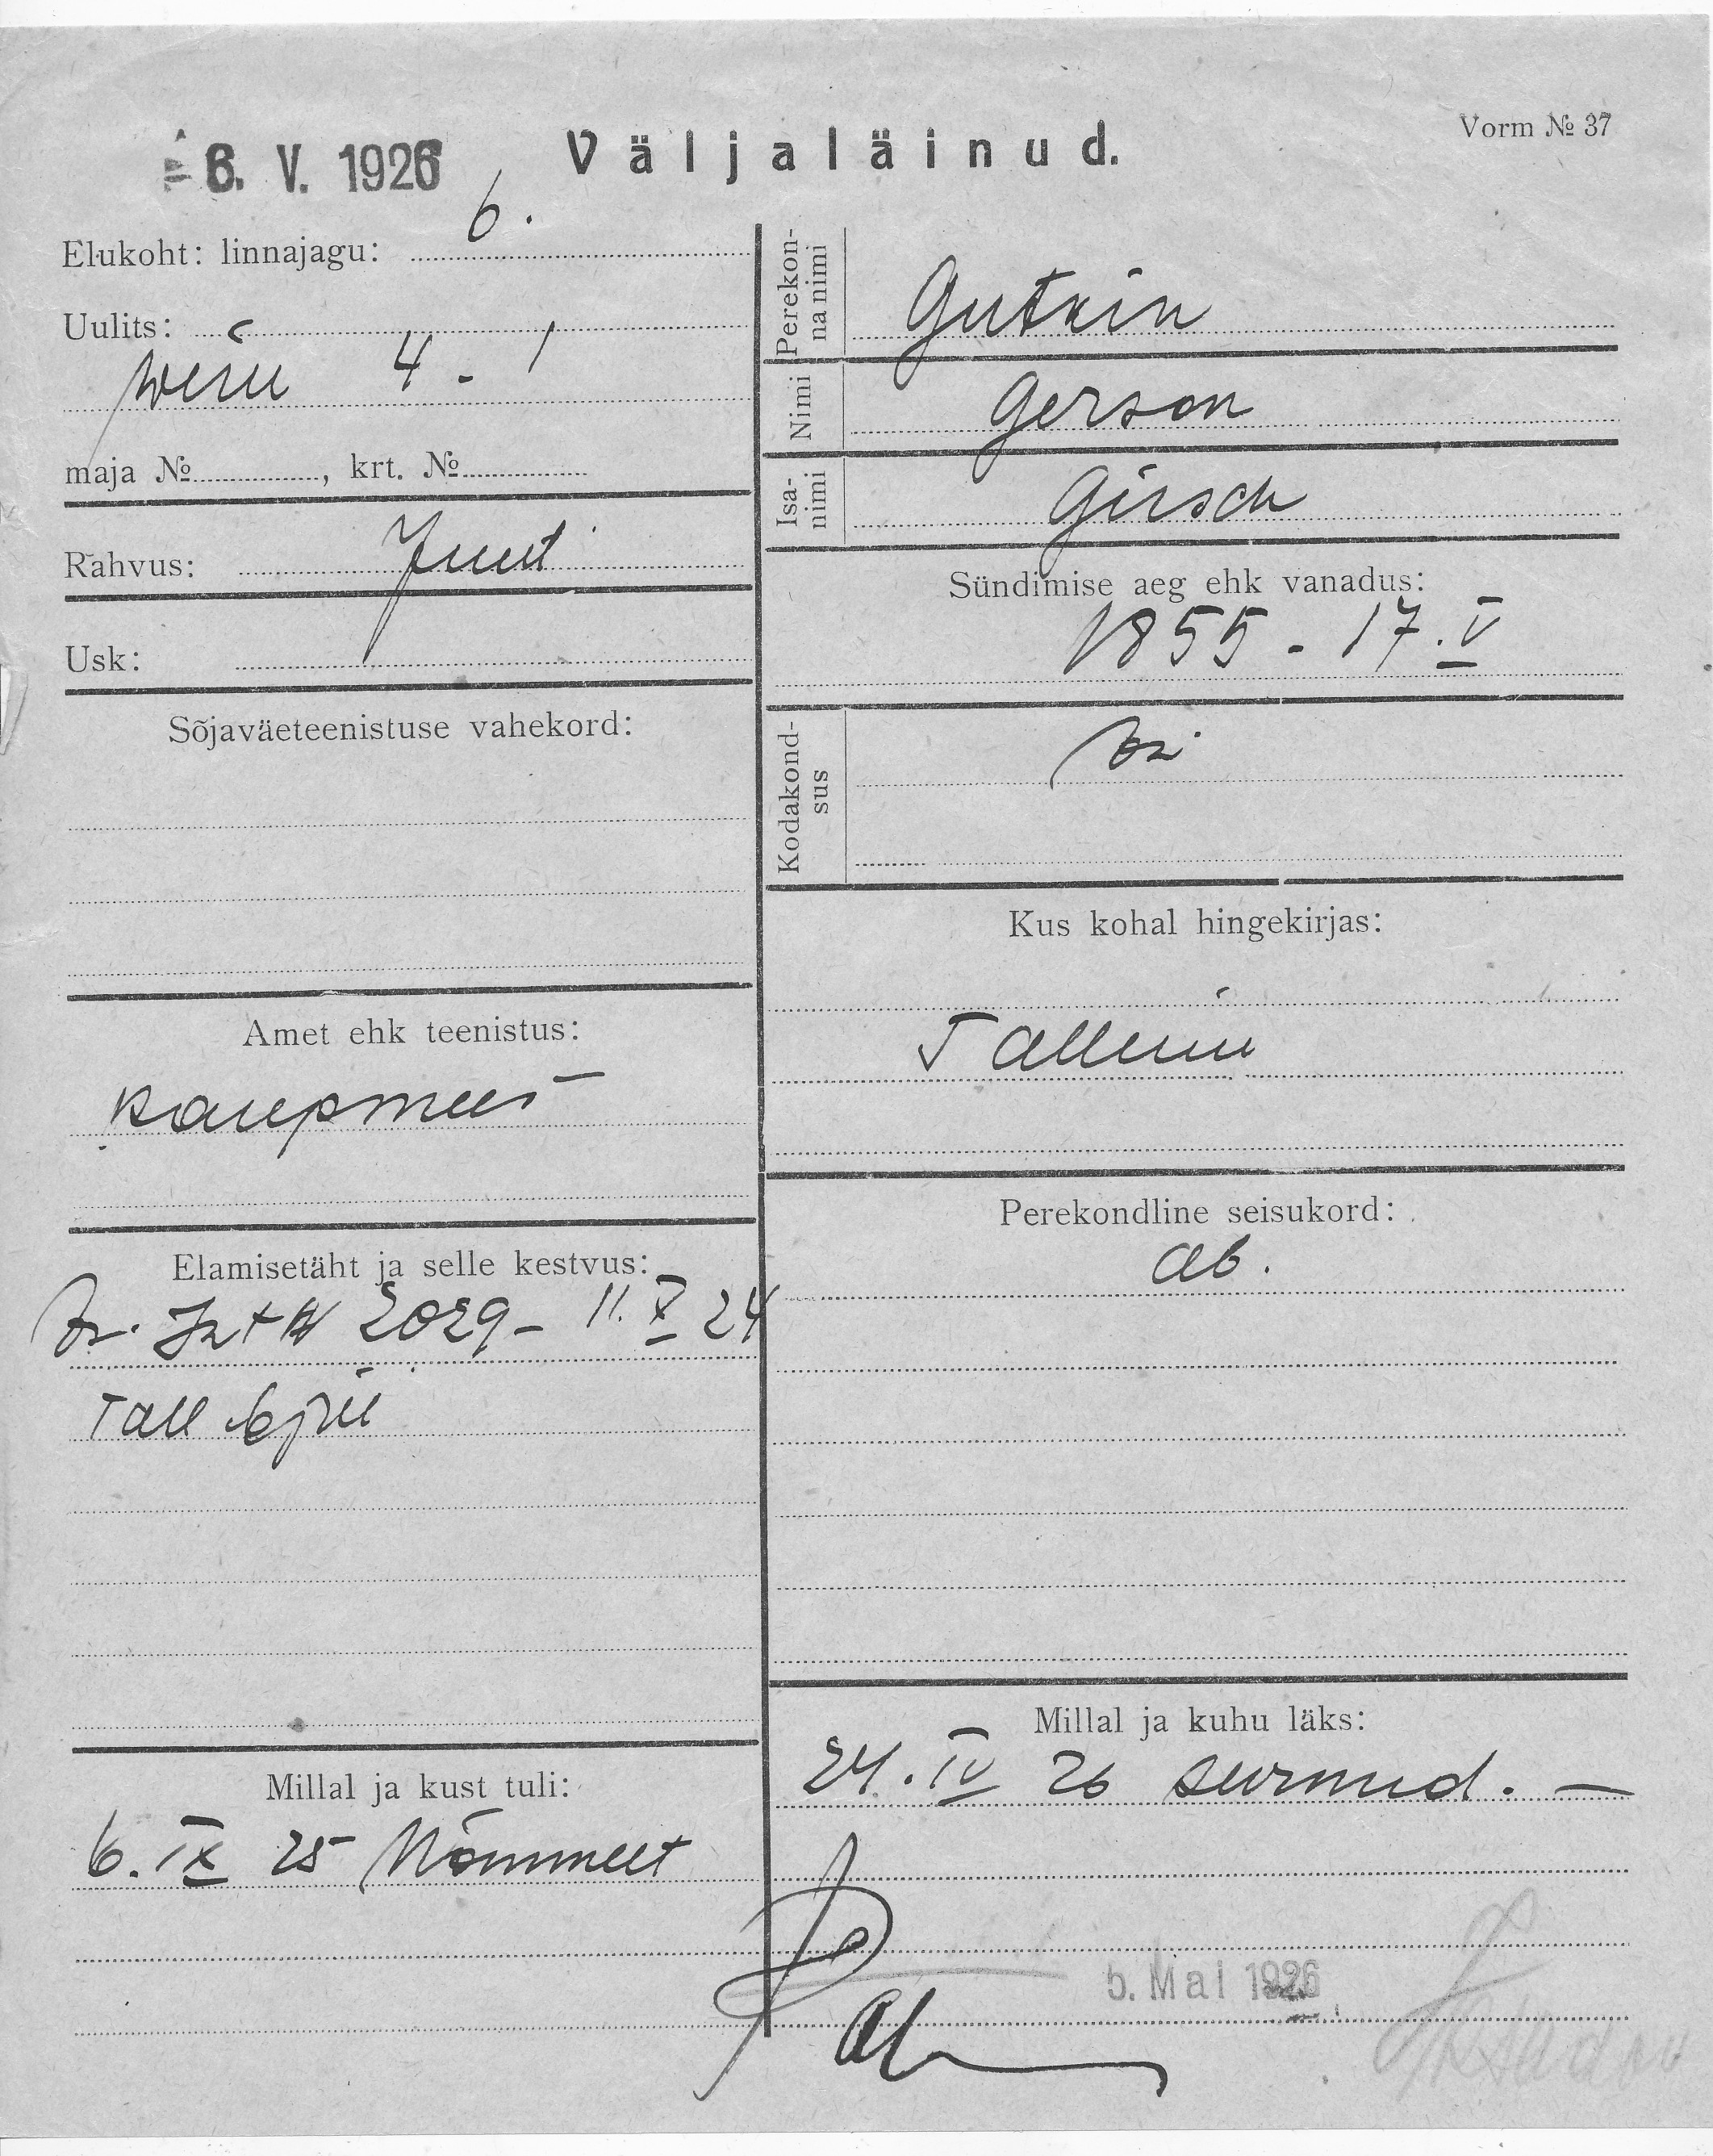 6. V. 1926
Väljaläinud.
Vorm № 37
Elukoht: linnajagu: 6.
Uulits:
Wiru 4 - 1
maja № , krt. №
Rahvus: Juut
Usk:
Sõjaväeteenistuse vahekord:
Amet ehk teenistus:
Kaupmees
Elamisetäht ja selle kestvus:
2029 - 11. X 24
Tall
Millal ja kust tuli:
6. IX 25 Nõmmelt
Perekonna nimi
Gutkin
Nimi
Gerson
Isanimi
Girsch
Sündimise aeg ehk vanadus:
1855 - 17. V
Kodakondsus
Kus kohal hingekirjas:
Tallinn
Perekondline seisukord:
ab.
Millal ja kuhu läks:
24. IV 26 surnud. —
5. Mai 1926